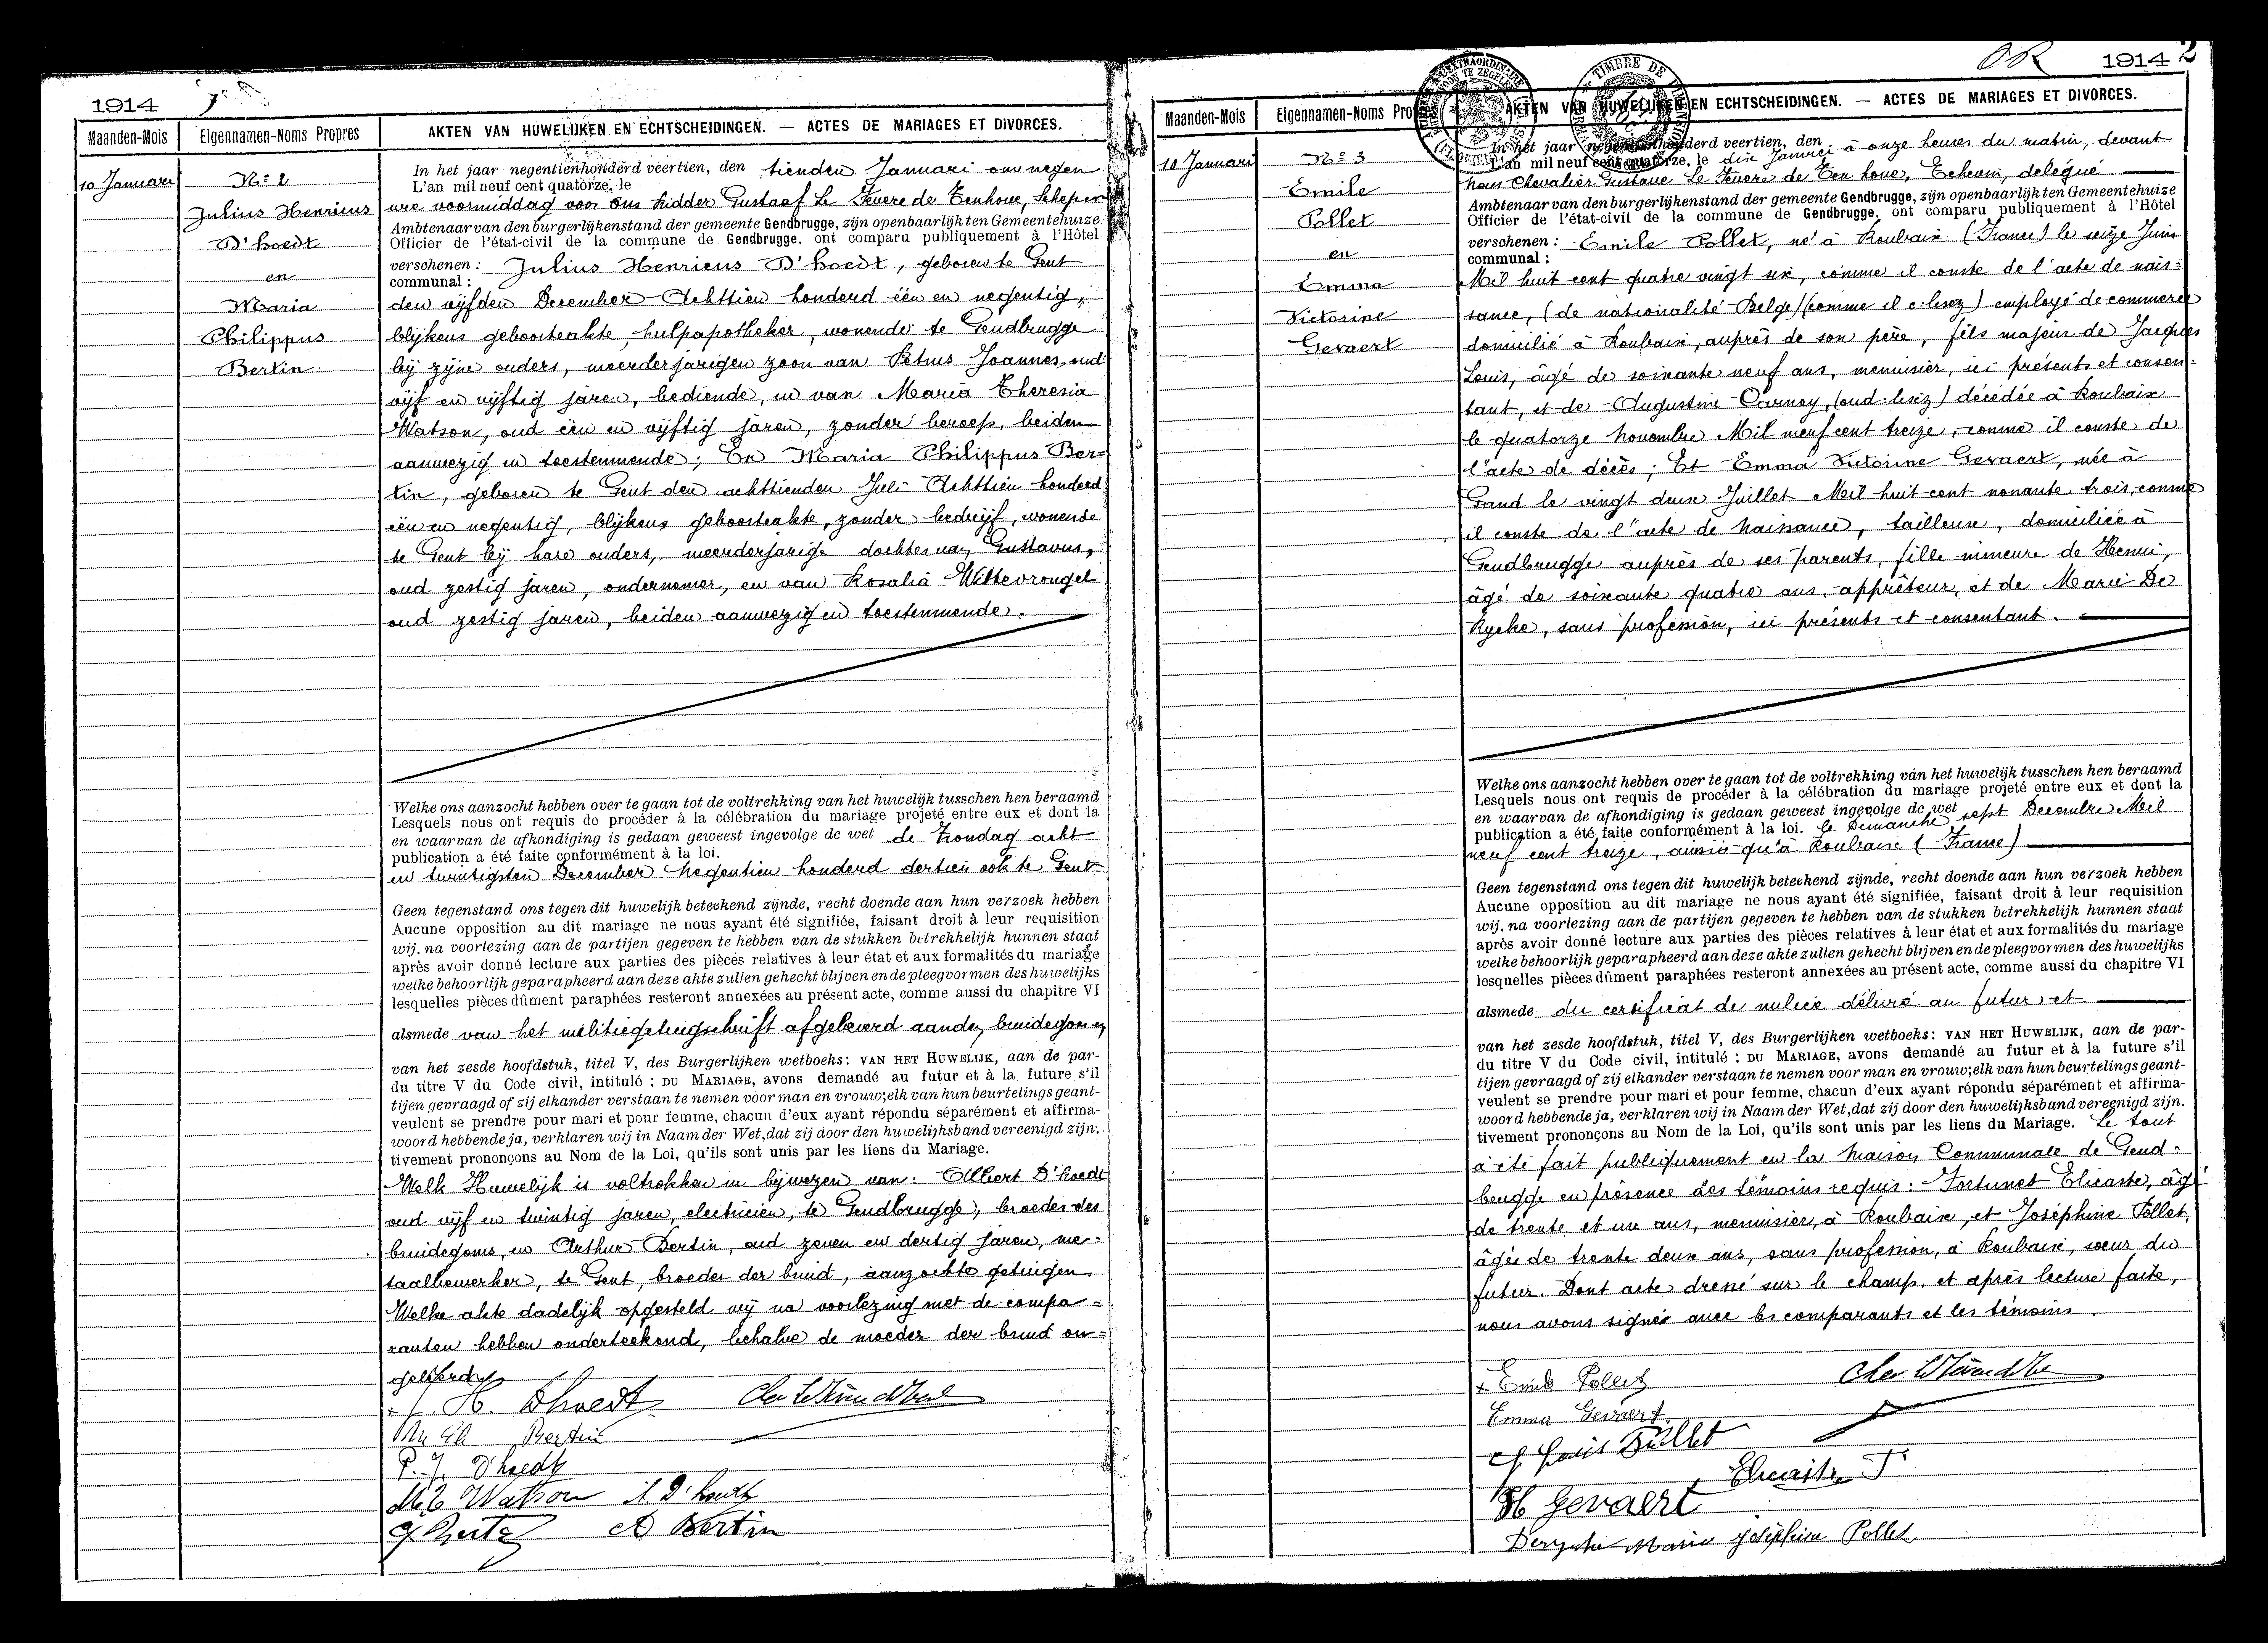 1914
Maanden-Mois
Eigennamen-Noms Propres
AKTEN VAN HUWELIJKEN EN ECHTSCHEIDINGEN. — ACTES DE MARIAGES ET DIVORCES.
10 Januari
No 2
Julius Henricus
D'hoedt
en
Maria
Philippus
Bertin
In het jaar negentienhonderd veertien, den tienden Januari om negen
L'an mil neuf cent quatorze, le
ure voormiddag voor ons Ridder Gustaaf Le Fevere de Tenhove, Schepen
Ambtenaar van den burgerlijkenstand der gemeente Gendbrugge, zijn openbaarlijk ten Gemeentehuize
Officier de l'état-civil de la commune de Gendbrugge, ont comparu publiquement à l'Hôtel
verschenen : Julius Henricus D'hoedt, geboren te Gent
communal :
den vijfden December Achttien honderd één en negentig,
blijkens geboorteakte, hulpapotheker, wonende te Gendbrugge
bij zijne ouders, meerderjarigen zoon van Petrus Joannes, oud
vijf en vijftig jaren, bediende, en van Maria Theresia
Watson, oud één en vijftig jaren, zonder beroep, beiden
aanwezig en toestemmende; En Maria Philippus Ber=
tin, geboren te Gent den achttienden Juli Achttien honderd
één en negentig, blijkens geboorteakte, zonder bedrijf, wonende
te Gent bij hare ouders, meerderjarige dochter van Gustavus,
oud zestig jaren, ondernemer, en van Rosalia Wittevrongel
oud zestig jaren, beiden aanwezig en toestemmende.
Welke ons aanzocht hebben over te gaan tot de voltrekking van het huwelijk tusschen hen beraamd
Lesquels nous ont requis de procéder à la célébration du mariage projeté entre eux et dont la
en waarvan de afkondiging is gedaan geweest ingevolge de wet de Zondag acht
publication a été faite conformément à la loi.
en twintigsten December Negentien honderd dertien ook te Gent
Geen tegenstand ons tegen dit huwelijk beteekend zijnde, recht doende aan hun verzoek hebben
Aucune opposition au dit mariage ne nous ayant été signifiée, faisant droit à leur requisition
wij, na voorlezing aan de partijen gegeven te hebben van de stukken betrekkelijk hunnen staat
après avoir donné lecture aux parties des pièces relatives à leur état et aux formalités du mariage
welke behoorlijk geparapheerd aan deze akte zullen gehecht blijven en de pleegvormen des huwelijks
lesquelles pièces dûment paraphées resteront annexées au présent acte, comme aussi du chapitre VI
alsmede van het militiegetuigschrift afgeleverd aan den bruidegom en
van het zesde hoofdstuk, titel V, des Burgerlijken wetboeks : VAN HET HUWELIJK, aan de par-
du titre V du Code civil, intitulé : DU MARIAGE, avons demandé au futur et à la future s'il
tijen gevraagd of zij elkander verstaan te nemen voor man en vrouw; elk van hun beurtelings geant-
veulent se prendre pour mari et pour femme, chacun d'eux ayant répondu séparément et affirma-
woord hebbende ja, verklaren wij in Naam der Wet, dat zij door den huwelijksband vereenigd zijn.
tivement prononçons au Nom de la Loi, qu'ils sont unis par les liens du Mariage.
Welk Huwelijk is voltrokken in bijwezen van: Albert D'hoedt
oud vijf en twintig jaren, electricien, te Gendbrugge, broeder des
bruidegoms, en Arthur Bertin, oud zeven en dertig jaren, me=
taalbewerker, te Gent, broeder der bruid, aanzochte getuigen
Welke akte dadelijk opgesteld wij na voorlezing met de compa=
ranten hebben onderteekend, behalve de moeder der bruid on=
geleerd
H. Dhoedt
Bertin
P. J. D'hoedt
M. T. Watson A D'hoedt
A Bertin
OR
1914 2
Maanden-Mois
Eigennamen-Noms Propres
AKTEN VAN HUWELIJKEN EN ECHTSCHEIDINGEN. — ACTES DE MARIAGES ET DIVORCES.
10 Januari
No 3
Emile
Pollet
en
Emma
Victorine
Gevaert
In het jaar negentienhonderd veertien, den
L'an mil neuf cent quatorze, le dix Janvier à onze heures du matin, devant
Nous Chevalier Gustave Le Fevere de Ten hove, Echevin, délégué
Ambtenaar van den burgerlijkenstand der gemeente Gendbrugge, zijn openbaarlijk ten Gemeentehuize
Officier de l'état-civil de la commune de Gendbrugge, ont comparu publiquement à l'Hôtel
verschenen : Emile Pollet, né à Roubaix (France) le seize Juin
communal :
Mil huit cent quatre vingt six, comme il conste de l'acte de nais=
sance, (de nationalité Belge) (comme il c: lisez) employé de commerce
domicilié à Roubaix, auprès de son père, fils majeur de Jacques
Louis, âgé de soixante neuf ans, menuisier, ici présents et consen=
tant, et de Augustine Carnoy, (oud: lisez) décédée à Roubaix
le quatorze Novembre Mil neuf cent treize, comme il conste de
l'acte de décès; Et Emma Victorine Gevaert, née à
Gand le vingt deux Juillet Mil huit cent nonante trois, comme
il conste de l'acte de naissance, tailleuse, domiciliée à
Gendbrugge auprès de ses parents, fille mineure de Henri,
âgé de soixante quatre ans, apprêteur, et de Marie De
Rycke, sans profession, ici présents et consentant.
Welke ons aanzocht hebben over te gaan tot de voltrekking van het huwelijk tusschen hen beraamd
Lesquels nous ont requis de procéder à la célébration du mariage projeté entre eux et dont la
en waarvan de afkondiging is gedaan geweest ingevolge de wet
publication a été faite conformément à la loi. le Dimanche sept Decembre Mil
neuf cent treize, ainsi qu'à Roubaix (France)
Geen tegenstand ons tegen dit huwelijk beteekend zijnde, recht doende aan hun verzoek hebben
Aucune opposition au dit mariage ne nous ayant été signifiée, faisant droit à leur requisition
wij, na voorlezing aan de partijen gegeven te hebben van de stukken betrekkelijk hunnen staat
après avoir donné lecture aux parties des pièces relatives à leur état et aux formalités du mariage
welke behoorlijk geparapheerd aan deze akte zullen gehecht blijven en de pleegvormen des huwelijks
lesquelles pièces dûment paraphées resteront annexées au présent acte, comme aussi du chapitre VI
alsmede du certificat de milice délivré au futur, et
van het zesde hoofdstuk, titel V, des Burgerlijken wetboeks : VAN HET HUWELIJK, aan de par-
du titre V du Code civil, intitulé : DU MARIAGE, avons demandé au futur et à la future s'il
tijen gevraagd of zij elkander verstaan te nemen voor man en vrouw; elk van hun beurtelings geant-
veulent se prendre pour mari et pour femme, chacun d'eux ayant répondu séparément et affirma-
woord hebbende ja, verklaren wij in Naam der Wet, dat zij door den huwelijksband vereenigd zijn.
tivement prononçons au Nom de la Loi, qu'ils sont unis par les liens du Mariage. Le tout
a été fait publiquement en la Maison Communale de Gend=
brugge en présence des témoins requis: Fortunet Elicaste, âgé
de trente et un ans, menuisier, à Roubaix, et Joséphine Pollet,
âgée de trente deux ans, sans profession, à Roubaix, soeur du
futur. Dont acte dressé sur le champ, et après lecture faite,
nous avons signés avec les comparants et les témoins.
Emile Pollet
Emma Gevaert
Louis Pollet
H Gevaert
Derycke Marie Joséphine Pollet